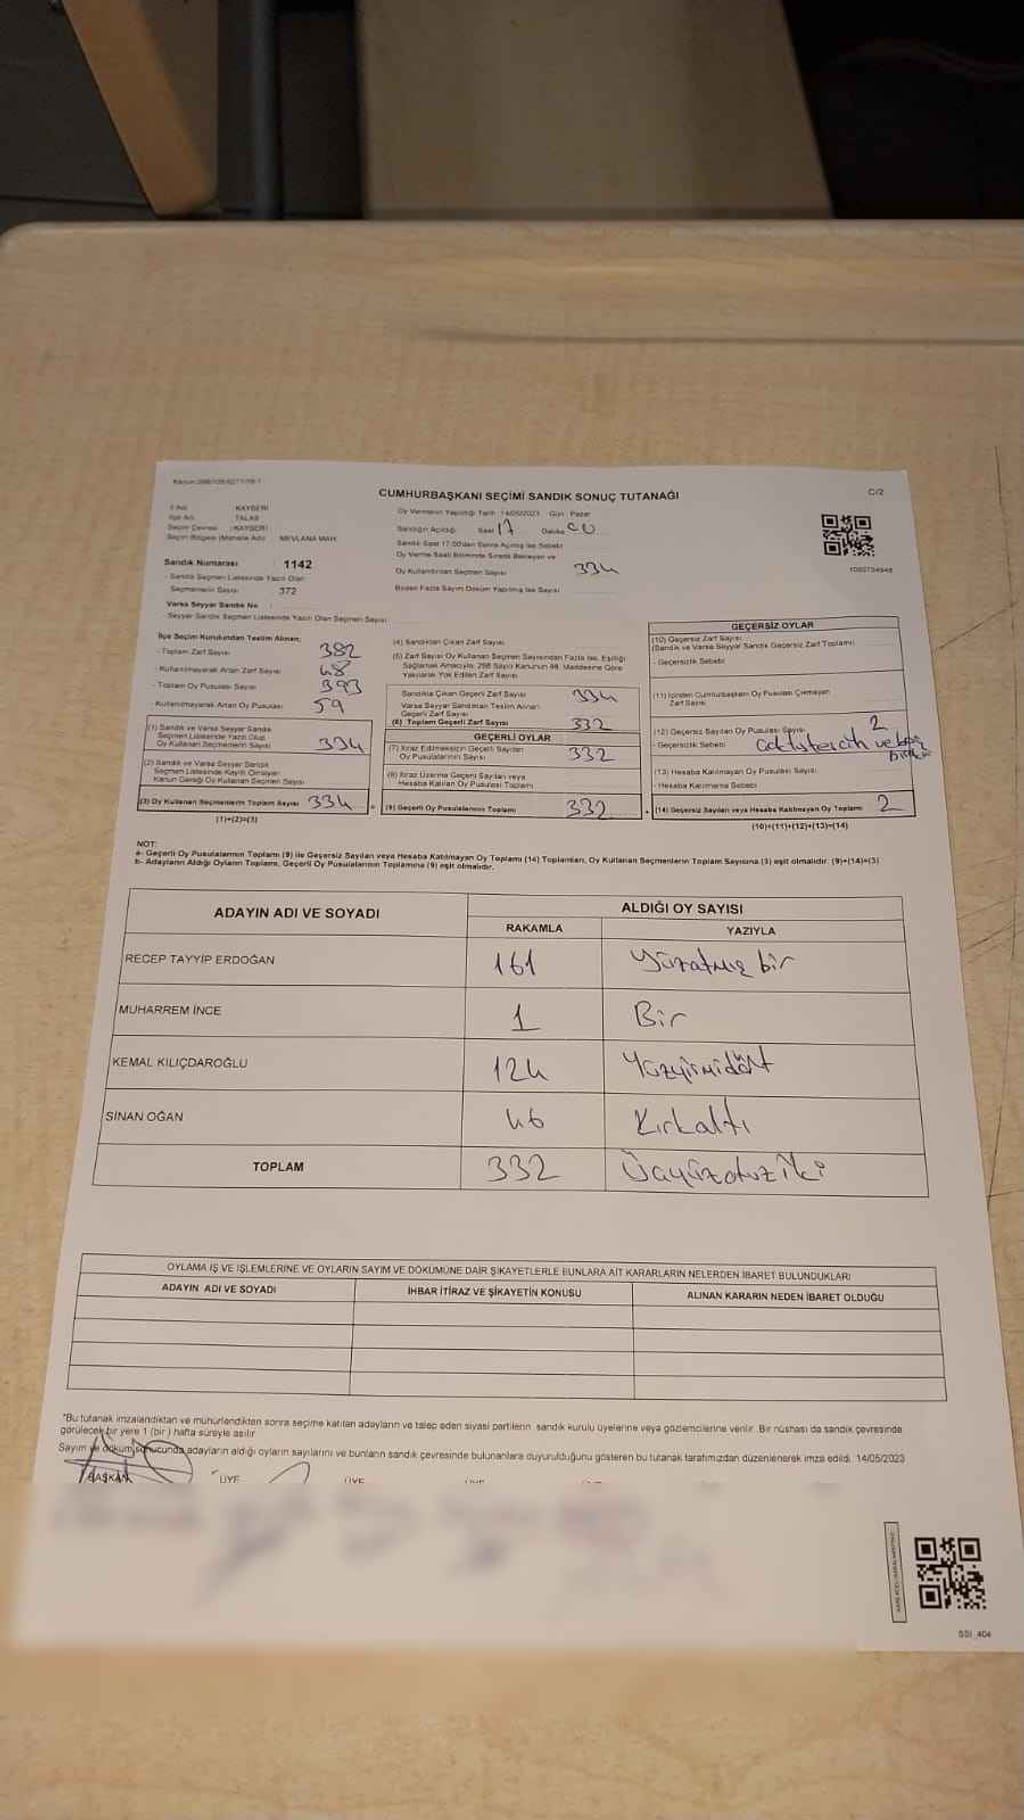 CUMHURBAŞKANI SEÇİMİ SANDIK SONUÇ TUTANAĞI
C/2
İl Adı KAYSERİ
İlçe Adı TALAS
Seçim Çevresi KAYSERİ
Seçim Bölgesi (Mahalle Adı) MEVLANA MAH.
Oy Vermenin Yapıldığı Tarih 14/05/2023 Gün Pazar
Sandığın Açıldığı Saat 17 Dakika 00
Oy Verme Saati Bitiminde Sırada Bekleyen ve
Oy Kullandıran Seçmen Sayısı 334
Birden Fazla Sayım Döküm Yapılmış İse Sayısı
Sandık Numarası 1142
- Sandık Seçmen Listesinde Yazılı Olan
Seçmenlerin Sayısı 372
Varsa Seyyar Sandık No
Seyyar Sandık Seçmen Listesinde Yazılı Olan Seçmen Sayısı
İlçe Seçim Kurulundan Teslim Alınan;
- Toplam Zarf Sayısı 382
- Kullanılmayarak Artan Zarf Sayısı 48
- Toplam Oy Pusulası Sayısı 393
- Kullanılmayarak Artan Oy Pusulası 59
(1) Sandık ve Varsa Seyyar Sandık
Seçmen Listesinde Yazılı Olup
Oy Kullanan Seçmenlerin Sayısı 334
(2) Sandık ve Varsa Seyyar Sandık
Seçmen Listesinde Kayıtlı Olmayan
Kanun Gereği Oy Kullanan Seçmen Sayısı
(3) Oy Kullanan Seçmenlerin Toplam Sayısı 334
(1)+(2)=(3)
(4) Sandıktan Çıkan Zarf Sayısı
(5) Zarf Sayısı Oy Kullanan Seçmen Sayısından Fazla İse, Eşitliği
Sağlamak Amacıyla, 298 Sayılı Kanunun 98. Maddesine Göre
Yakılarak Yok Edilen Zarf Sayısı
Sandıkta Çıkan Geçerli Zarf Sayısı 334
Varsa Seyyar Sandıktan Teslim Alınan
Geçerli Zarf Sayısı
(6) Toplam Geçerli Zarf Sayısı 332
GEÇERLİ OYLAR
(7) İtiraz Edilmeksizin Geçerli Sayılan
Oy Pusulalarının Sayısı 332
(8) İtiraz Üzerine Geçerli Sayılan veya
Hesaba Katılan Oy Pusulası Toplamı
(9) Geçerli Oy Pusulalarının Toplamı 332
GEÇERSİZ OYLAR
(10) Geçersiz Zarf Sayısı
(Sandık ve Varsa Seyyar Sandık Geçersiz Zarf Toplamı)
- Geçersizlik Sebebi
(11) İçinden Cumhurbaşkanı Oy Pusulası Çıkmayan
Zarf Sayısı
(12) Geçersiz Sayılan Oy Pusulası Sayısı 2
- Geçersizlik Sebebi
(13) Hesaba Katılmayan Oy Pusulası Sayısı
- Hesaba Katılmama Sebebi
(14) Geçersiz Sayılan veya Hesaba Katılmayan Oy Toplamı 2
(10)+(11)+(12)+(13)=(14)
NOT:
a- Geçerli Oy Pusulalarının Toplamı (9) ile Geçersiz Sayılan veya Hesaba Katılmayan Oy Toplamı (14) Toplamları, Oy Kullanan Seçmenlerin Toplam Sayısına (3) eşit olmalıdır. (9)+(14)=(3)
b- Adayların Aldığı Oyların Toplamı, Geçerli Oy Pusulalarının Toplamına (9) eşit olmalıdır.
ADAYIN ADI VE SOYADI
ALDIĞI OY SAYISI
RAKAMLA YAZIYLA
RECEP TAYYİP ERDOĞAN 161 Yüzatmış bir
MUHARREM İNCE 1 Bir
KEMAL KILIÇDAROĞLU 124 Yüzyirmidört
SİNAN OĞAN 46 Kırkaltı
TOPLAM 332 Üçyüzotuziki
OYLAMA İŞ VE İŞLEMLERİNE VE OYLARIN SAYIM VE DÖKÜMÜNE DAİR ŞİKAYETLERLE BUNLARA AİT KARARLARIN NELERDEN İBARET BULUNDUKLARI
ADAYIN ADI VE SOYADI İHBAR İTİRAZ VE ŞİKAYETİN KONUSU ALINAN KARARIN NEDEN İBARET OLDUĞU
*Bu tutanak imzalandıktan ve mühürlendikten sonra seçime katılan adayların ve talep eden siyasi partilerin sandık kurulu üyelerine veya gözlemcilerine verilir. Bir nüshası da sandık çevresinde
görülecek bir yere 1 (bir) hafta süreyle asılır
Sayım ve döküm sonucunda adayların aldığı oyların sayılarını ve bunların sandık çevresinde bulunanlara duyurulduğunu gösteren bu tutanak tarafımızdan düzenlenerek imza edildi. 14/05/2023
BAŞKAN ÜYE ÜYE
SSI_404